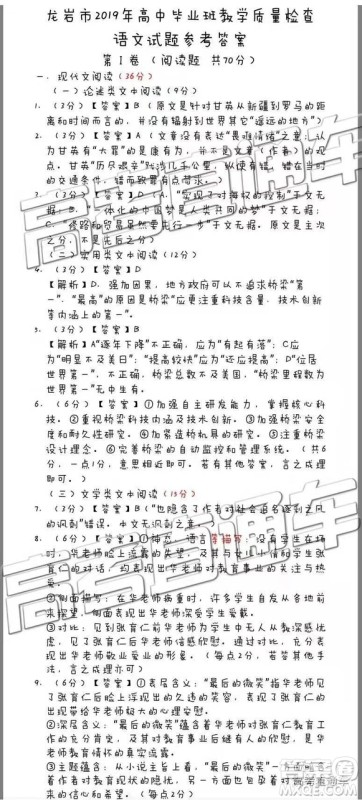 龙岩市2019年高中毕业班教学质量检查
语文试题参考答案
第Ⅰ卷（阅读题 共70分）
一、现代文阅读（36分）
（一）论述类文中阅读（9分）
1．（3分）【答案】B（原文是针对甘英从新疆到罗马的距
离和时间而言的，并没有辐射到世界其它“遥远的地方”）
2．（3分）【答案】A（文章没有表达“畏难情绪”之意；认
为甘英有“大罪”的是康有为，并不是文章（作者）的观
点。甘英“历尽艰辛”
的交通条件，错而致罪有点苛求。）
3．（3分）【答案】D（A．“实现了对海权的控制”于文无
据；B．“一体化的中国梦是人类共同的梦”于文无据；
C．“修路和贸易虽然要先行一步”于文无据。原文是主次
之分，不是先后之分）
（二）实用类文中阅读（12分）
4．（3分）【答案】D
【解析】D．强加因果，地方政府可以不追求桥梁“第
一”，“最高”的原因是桥梁“应更注重科技含量，技术创新
等内涵上的第一”。
5．（3分）【答案】B
【解析】A“逐年下降”不正确，应为“有起有落”；C应
为“明显不及美日”；“提高较快”应为“还应提高”；D“位居
世界第一”，不正确，桥梁总数不及美国，“桥梁里程数为
世界第一”无中生有。
6．（6分）【答案】①加强自主研发能力，掌握核心科
技。②重视桥梁科技内涵及创新。③加强桥梁安全
和耐久性研究。④加紧造桥机具的研究。⑤注重桥梁
设计理念。⑥完善桥梁的自动监控和管理系统。（共6
分，一点1分，意思相近即可。若有其他答案，言之成理
即可。）
（三）文学类文中阅读（15分）
7．（3分）【答案】B（“也隐含了作者对社会追名逐利之风
的讽刺”错误，中文无讽刺之意。）
8．（6分）【答案】①
时，华老师脸上流露的失望，及其与女儿小倩和学生张
育仁的对话，均表现出华老师对教育事业的关注与热
爱。
②侧面描写：在华老师病重时，许多学生自发从各地前
来探望，侧面表现出华老师深受学生爱戴。
③对比：见到张育仁前华老师为学生中无人从教深感忧
虑，见了张育仁后华老师倍感欣慰。通过对比，充分表
现出华老师敬业爱业的形象。（每点2分，若答其他手
法，言之成理亦可）
9．（6分）【答案】①表层含义：“最后的微笑”指华老师
见了张育仁后脸上浮现出的久违的笑容，表现张育仁的出
现带给华老师极大的心灵慰藉。
②深层含义：“最后的微笑”蕴含着华老师对张育仁教育
工作的充分支持，及其对教育事业后继有人的欣慰，是华
老师教育情怀的真实流露。
③主题蕴含：从小说主旨上看，“最后的微笑”一方面蕴含
着作者对教育现状的隐忧，另一方面也包孕着对
来的信心和希望。（每点2分）